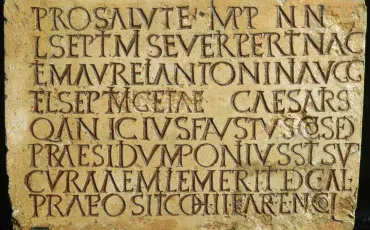 PRO SALVTE · IMPP N N
L SEPTIMI SEVERI PERTINAC
ET M AVRELI ANTONINI AVGG
ET L SEPTIMI GETAE CAESARIS
Q ANICIVS FAVSTVS COS ED
PRAESIDIVM PONI IVSSIT SV
CVRA AEMILI EMERITI DEC AL
PRAEPOSITI COH II FL AFR EN COL